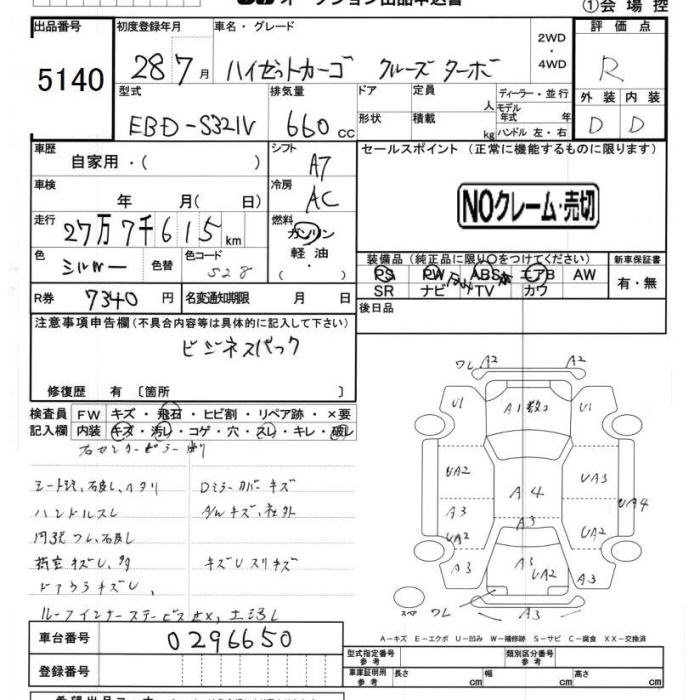 オークション出品申込書 ①会場控
出品番号 初度登録年月 車名・グレード 2WD・4WD 評価点
5140 28 7月 ハイゼットカーゴ クルーズ ターボ R
型式 排気量 ドア 定員 人 ディーラー・並行 外装 内装
EBD-S321V 660cc 形状 積載 kg モデル年式 年 ハンドル 左・右 D D
車歴 自家用・( ) シフト A7 セールスポイント (正常に機能するものに限ります)
車検 年 月(日) 冷房 AC NOクレーム・売切
走行 27万7千615km 燃料 ガソリン 軽油・
色 シルバー 色替 色コード S28
装備品(純正品に限り○をつけてください) 新車保証書
PS PW ABS エアB AW 有・無
SR ナビ TV カワ
R券 7340円 名変通知期限 月 日 後日品
注意事項申告欄(不具合内容等は具体的に記入して下さい)
ビジネスパック
修復歴 有〔箇所 〕
検査員 FW キズ・飛石・ヒビ割・リペア跡・×要
記入欄 内装 キズ・汚レ・コゲ・穴・スレ・キレ・破レ
右センターピラー
Dミラーカバーキズ
ハンドルスレ A/Wキズ、社外
キズUスリキズ
ドアウラキズU、
ワレ A2 A2
U1 A1数コ U1
UA2 A4 UA3 UA4
A3 A3
UA2 UA2
A3 A3 UA2 A3
スペア ワレ A3
A-キズ E-エクボ U-凹み W-補修跡 S-サビ C-腐食 XX-交換済
車台番号 0296650
登録番号
型式指定番号 参考 類別区分番号 参考
車庫証明用 参考 長さ cm 幅 cm 高さ cm